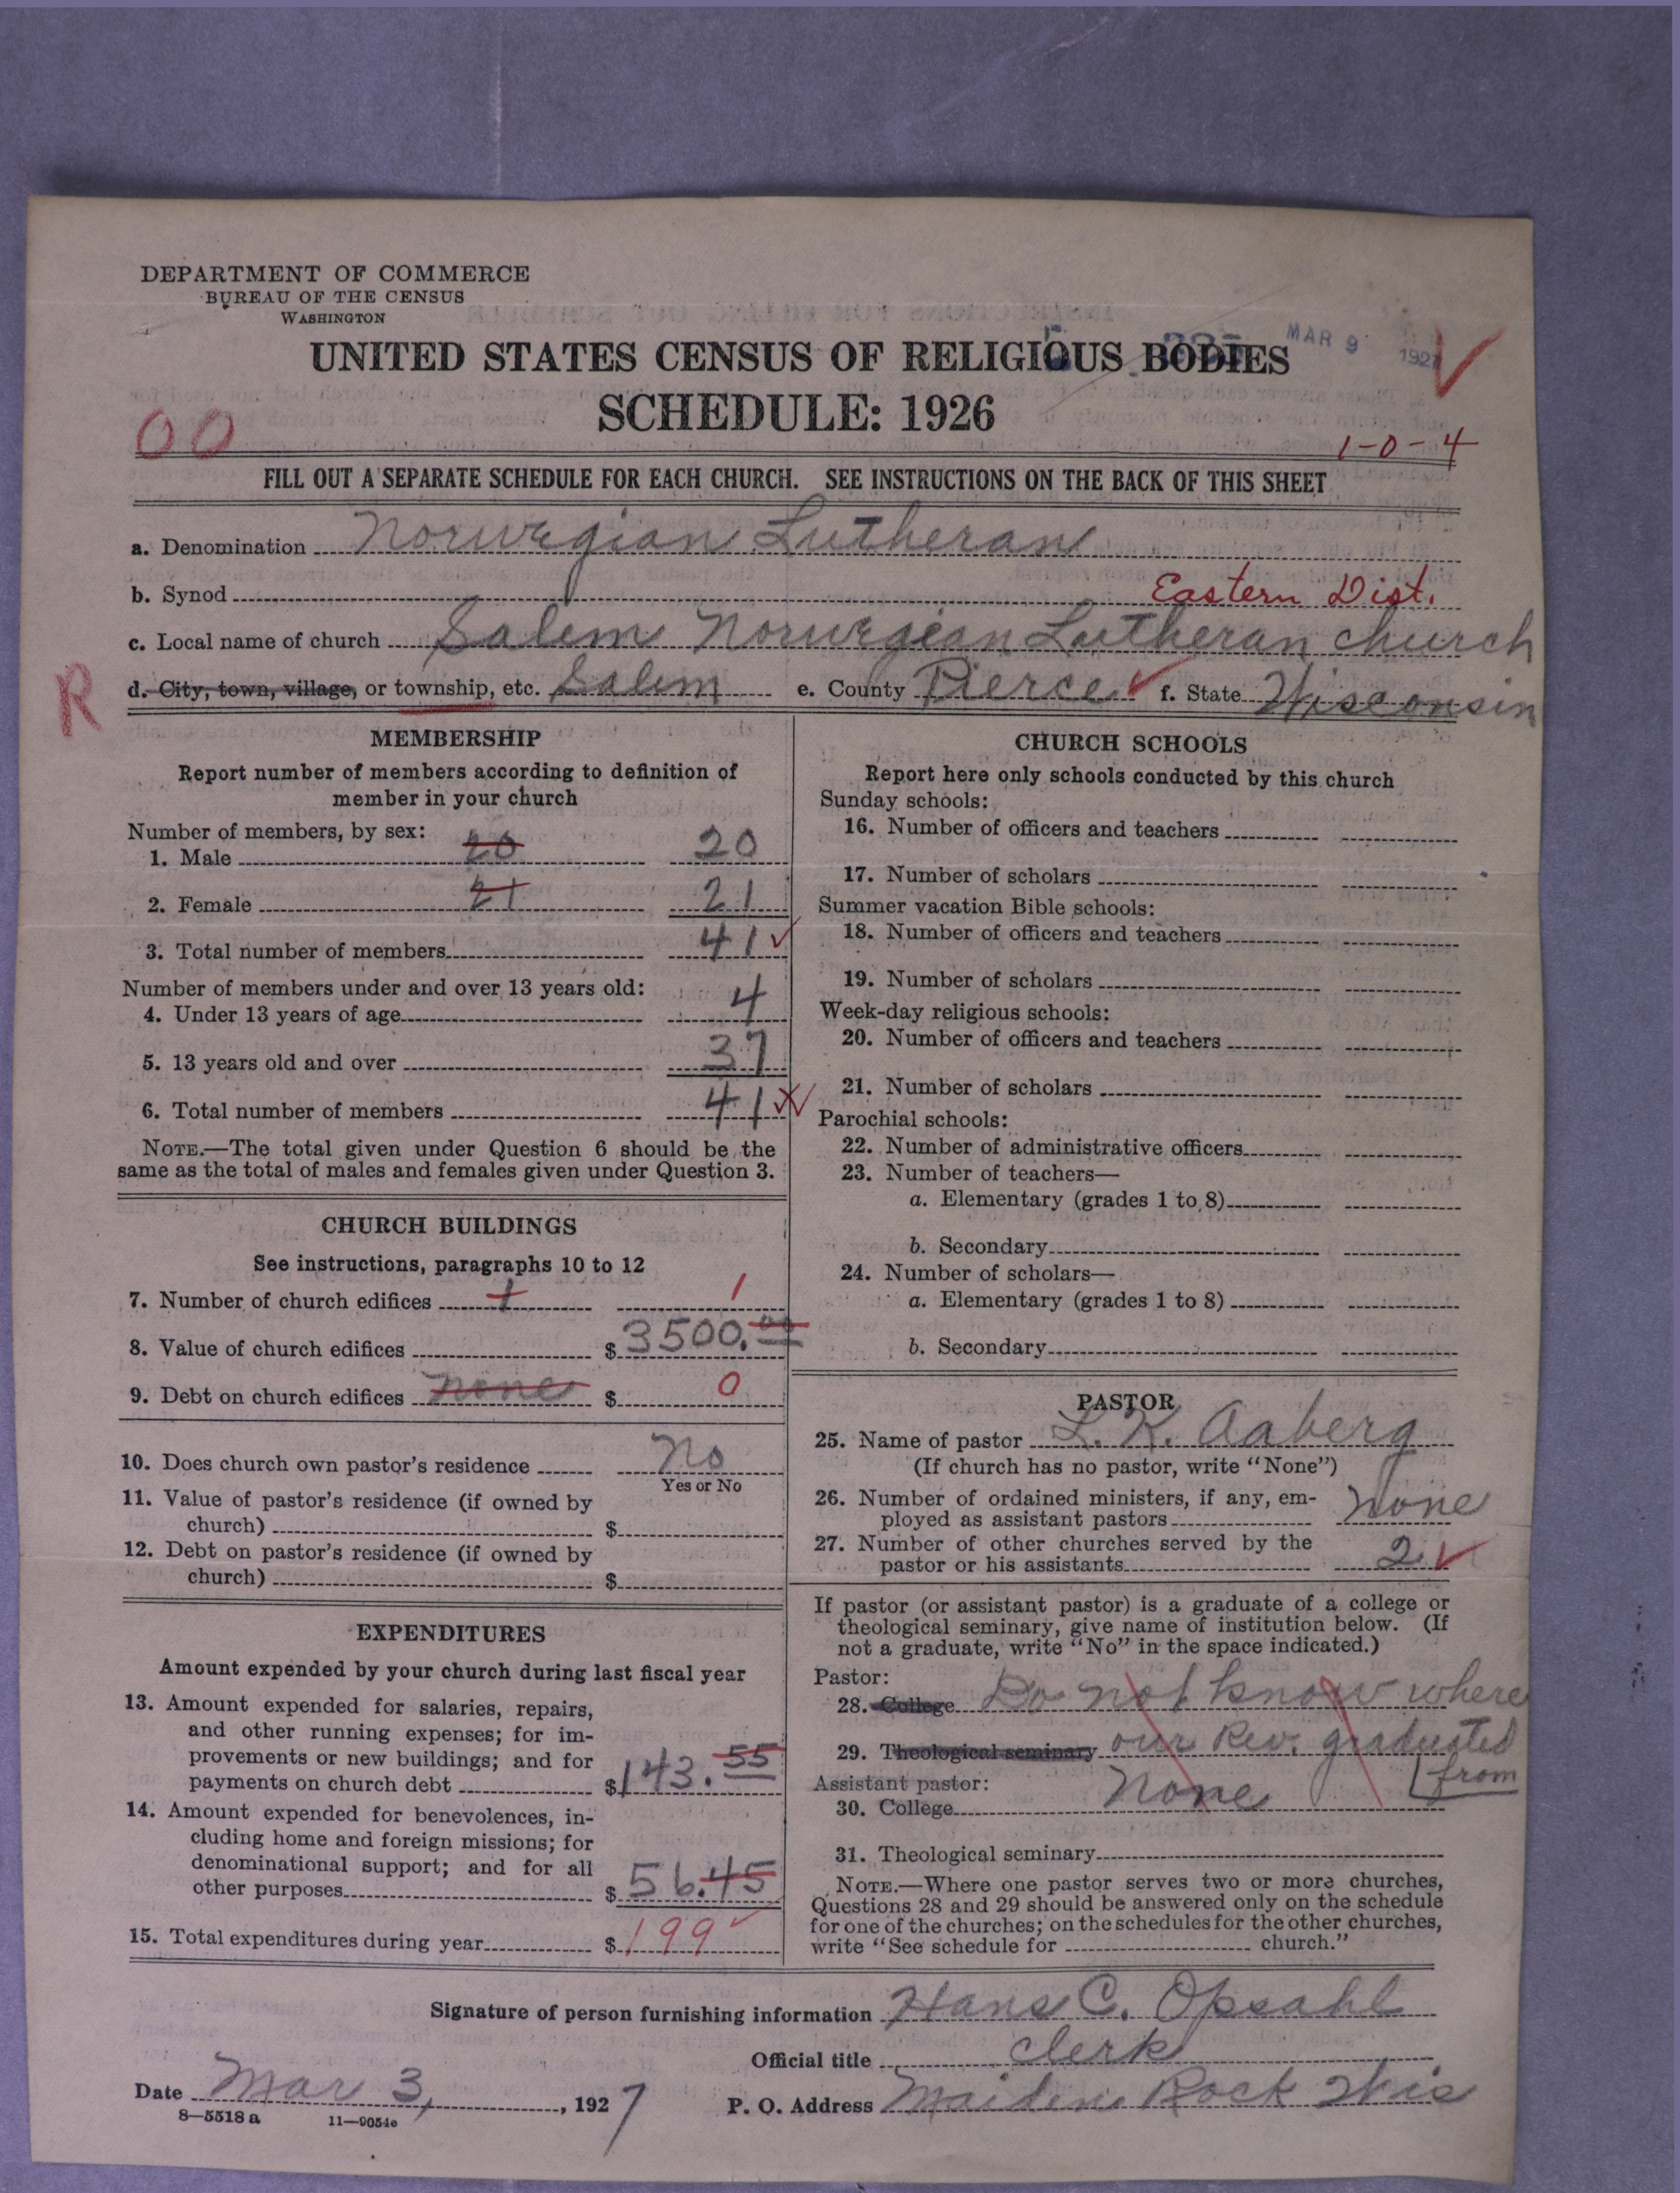 DEPARTMENT OF COMMERCE
BUREAU OF THE CENSUS
WASHINGTON
MAR 9 1927
UNITED STATES CENSUS OF RELIGIOUS BODIES
SCHEDULE: 1926
00
1-0-4
FILL OUT A SEPARATE SCHEDULE FOR EACH CHURCH. SEE INSTRUCTIONS ON THE BACK OF THIS SHEET
a. Denomination Norwegian Lutheran
b. Synod Eastern Dist.
c. Local name of church Salem Norwegian Lutheran church
R
d. City, town, village, or township, etc. Salem e. County Pierce f. State Wisconsin
MEMBERSHIP
Report number of members according to definition of
member in your church
Number of members, by sex:
1. Male 20 20
2. Female 21 21
3. Total number of members 41
Number of members under and over 13 years old:
4. Under 13 years of age 4
5. 13 years old and over 37
6. Total number of members 41
NOTE.—The total given under Question 6 should be the
same as the total of males and females given under Question 3.
CHURCH BUILDINGS
See instructions, paragraphs 10 to 12
7. Number of church edifices 1 1
8. Value of church edifices $ 3500.00
9. Debt on church edifices none $ 0
10. Does church own pastor's residence No
Yes or No
11. Value of pastor's residence (if owned by
church) $
12. Debt on pastor's residence (if owned by
church) $
EXPENDITURES
Amount expended by your church during last fiscal year
13. Amount expended for salaries, repairs,
and other running expenses; for im-
provements or new buildings; and for
payments on church debt $ 143.55
14. Amount expended for benevolences, in-
cluding home and foreign missions; for
denominational support; and for all
other purposes $ 56.45
15. Total expenditures during year $ 199
CHURCH SCHOOLS
Report here only schools conducted by this church
Sunday schools:
16. Number of officers and teachers
17. Number of scholars
Summer vacation Bible schools:
18. Number of officers and teachers
19. Number of scholars
Week-day religious schools:
20. Number of officers and teachers
21. Number of scholars
Parochial schools:
22. Number of administrative officers
23. Number of teachers—
a. Elementary (grades 1 to 8)
b. Secondary
24. Number of scholars—
a. Elementary (grades 1 to 8)
b. Secondary
PASTOR
25. Name of pastor L. K. Aaberg
(If church has no pastor, write "None")
26. Number of ordained ministers, if any, em-
ployed as assistant pastors None
27. Number of other churches served by the
pastor or his assistants 2
If pastor (or assistant pastor) is a graduate of a college or
theological seminary, give name of institution below. (If
not a graduate, write "No" in the space indicated.)
Pastor:
28. College Do not know where
29. Theological seminary our Rev. graduated
from
Assistant pastor:
30. College None
31. Theological seminary
NOTE.—Where one pastor serves two or more churches,
Questions 28 and 29 should be answered only on the schedule
for one of the churches; on the schedules for the other churches,
write "See schedule for church."
Signature of person furnishing information Hans C. Opsahl
Official title clerk
Date Mar 3, 1927 P. O. Address Maiden Rock Wis
8—5518 a 11—9054e